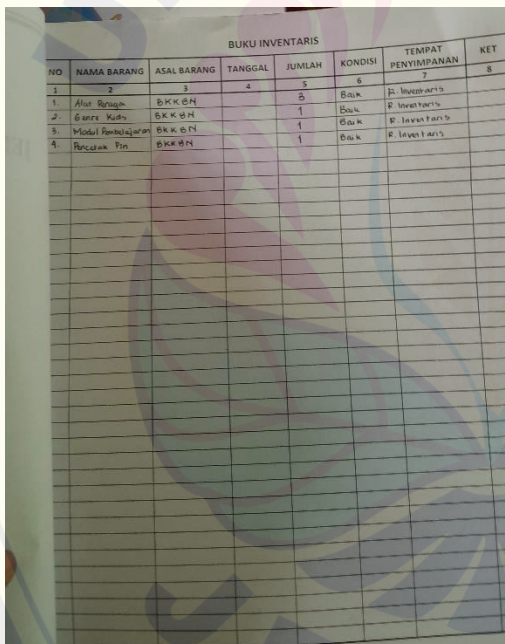 BUKU INVENTARIS
NO NAMA BARANG ASAL BARANG TANGGAL JUMLAH KONDISI TEMPAT PENYIMPANAN KET
1 2 3 4 5 6 7 8
1. Alat Peraga BKKBN 3 Baik R. Inventaris
2. Genre Kids BKKBN 1 Baik R. Inventaris
3. Modul Pembelajaran BKKBN 1 Baik R. Inventaris
4. Pencetak Pin BKKBN 1 Baik R. Inventaris